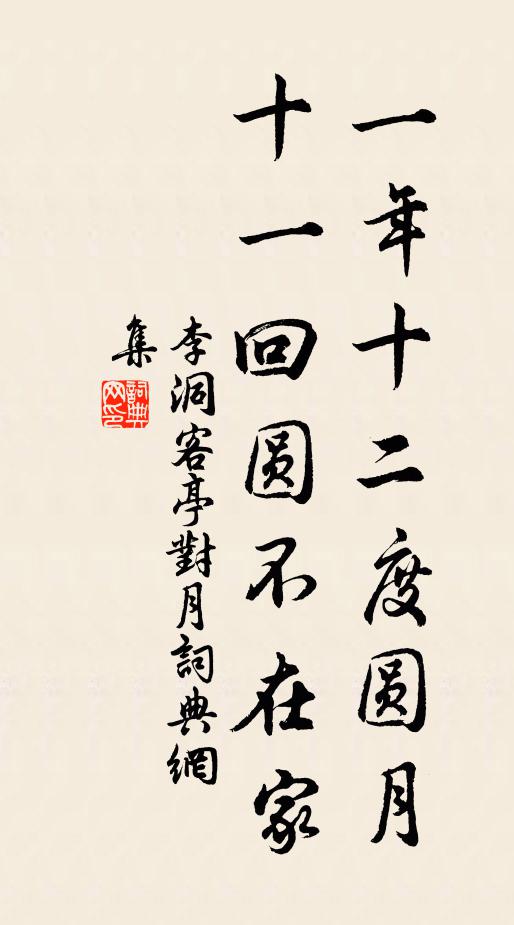 一年十二度圆月
十一回圆不在家
李洞客亭對月詞典網
集
詞典网印